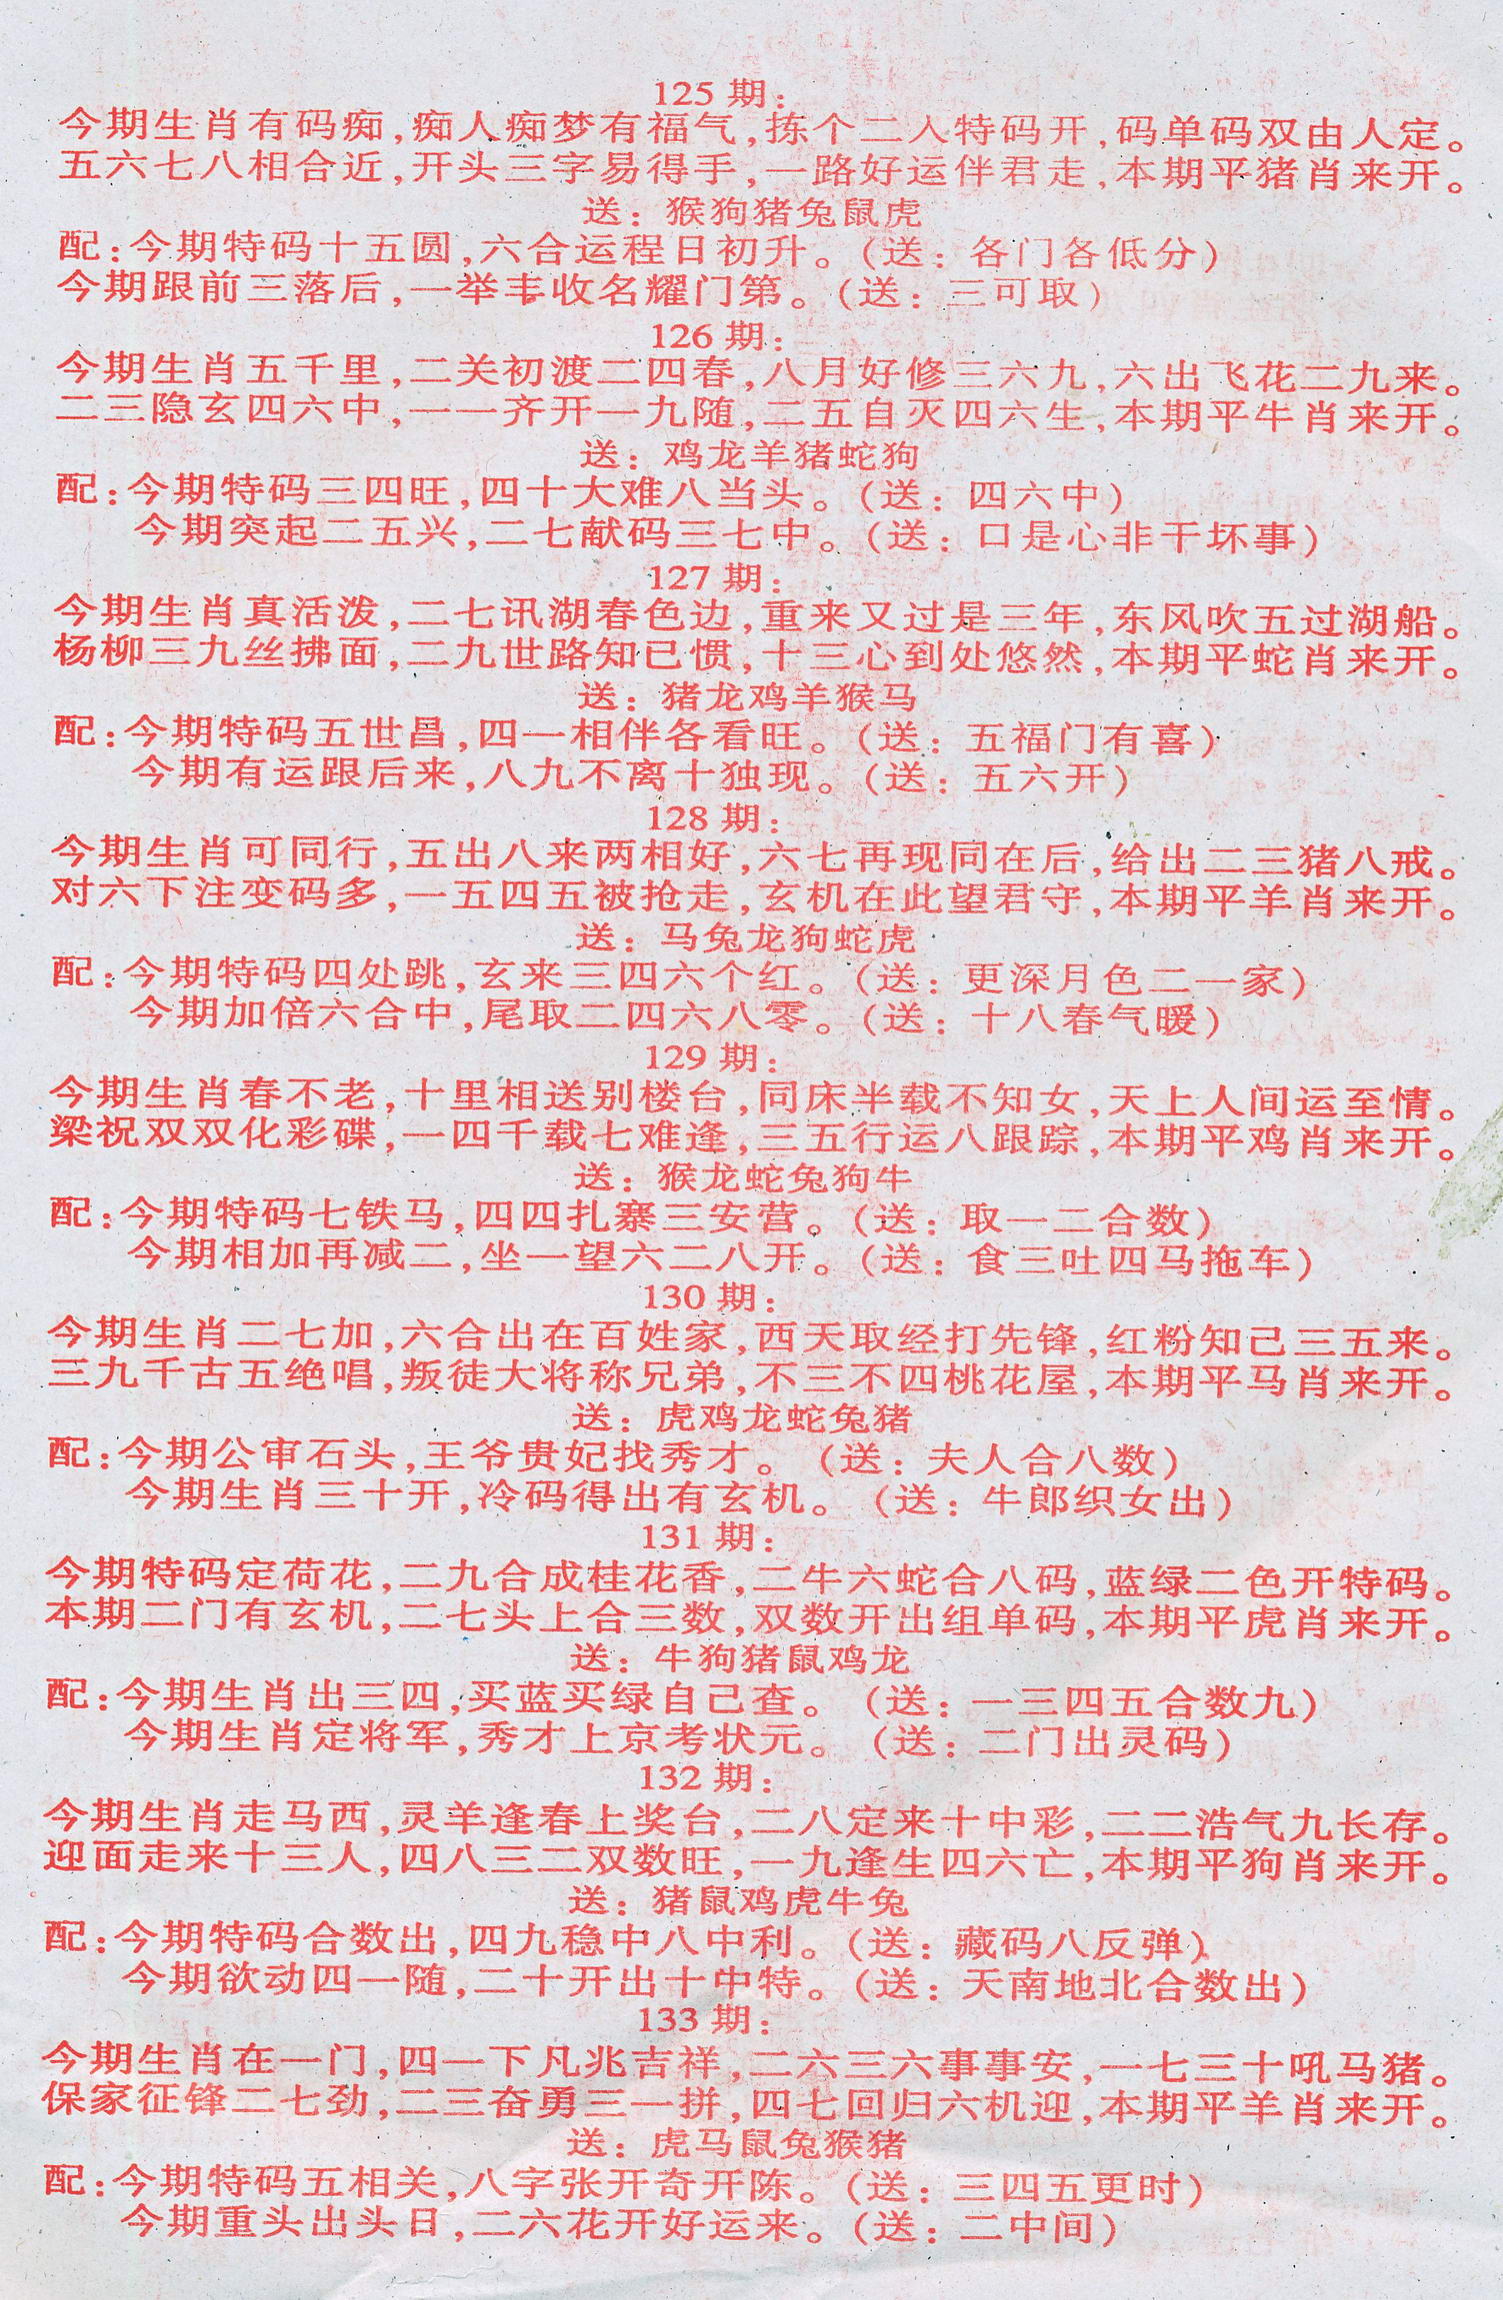 125 期：
今期生肖有码痴,痴人痴梦有福气,拣个二人特码开,码单码双由人定。
五六七八相合近,开头三字易得手,一路好运伴君走,本期平猪肖来开。
送：猴狗猪兔鼠虎
配:今期特码十五圆,六合运程日初升。(送：各门各低分)
今期跟前三落后,一举丰收名耀门第。(送：三可取)
126 期：
今期生肖五千里,二关初渡二四春,八月好修三六九,六出飞花二九来。
二三隐玄四六中,一一齐开一九随,二五自灭四六生,本期平牛肖来开。
送：鸡龙羊猪蛇狗
配:今期特码三四旺,四十大难八当头。(送：四六中)
今期突起二五兴,二七献码三七中。(送：口是心非干坏事)
127 期：
今期生肖真活泼,二七讯湖春色边,重来又过是三年,东风吹五过湖船。
杨柳三九丝拂面,二九世路知已惯,十三心到处悠然,本期平蛇肖来开。
送：猪龙鸡羊猴马
配:今期特码五世昌,四一相伴各看旺。(送：五福门有喜)
今期有运跟后来,八九不离十独现。(送：五六开)
128 期：
今期生肖可同行,五出八来两相好,六七再现同在后,给出二三猪八戒。
对六下注变码多,一五四五被抢走,玄机在此望君守,本期平羊肖来开。
送：马兔龙狗蛇虎
配:今期特码四处跳,玄来三四六个红。(送：更深月色二一家)
今期加倍六合中,尾取二四六八零。(送：十八春气暖)
129 期：
今期生肖春不老,十里相送别楼台,同床半载不知女,天上人间运至情。
梁祝双双化彩碟,一四千载七难逢,三五行运八跟踪,本期平鸡肖来开。
送：猴龙蛇兔狗牛
配:今期特码七铁马,四四扎寨三安营。(送：取一二合数)
今期相加再减二,坐一望六二八开。(送：食三吐四马拖车)
130 期：
今期生肖二七加,六合出在百姓家,西天取经打先锋,红粉知己三五来。
三九千古五绝唱,叛徒大将称兄弟,不三不四桃花屋,本期平马肖来开。
送：虎鸡龙蛇兔猪
配:今期公审石头,王爷贵妃找秀才。(送：夫人合八数)
今期生肖三十开,冷码得出有玄机。(送：牛郎织女出)
131 期：
今期特码定荷花,二九合成桂花香,二牛六蛇合八码,蓝绿二色开特码。
本期二门有玄机,二七头上合三数,双数开出组单码,本期平虎肖来开。
送：牛狗猪鼠鸡龙
配:今期生肖出三四,买蓝买绿自己查。(送：一三四五合数九)
今期生肖定将军,秀才上京考状元。(送：二门出灵码)
132 期：
今期生肖走马西,灵羊逢春上奖台,二八定来十中彩,二二浩气九长存。
迎面走来十三人,四八三二双数旺,一九逢生四六亡,本期平狗肖来开。
送：猪鼠鸡虎牛兔
配:今期特码合数出,四九稳中八中利。(送：藏码八反弹)
今期欲动四一随,二十开出十中特。(送：天南地北合数出)
133 期：
今期生肖在一门,四一下凡兆吉祥,二六三六事事安,一七三十吼马猪。
保家征锋二七劲,二三奋勇三一拼,四七回归六机迎,本期平羊肖来开。
送：虎马鼠兔猴猪
配:今期特码五相关,八字张开奇开陈。(送：三四五更时)
今期重头出头日,二六花开好运来。(送：二中间)